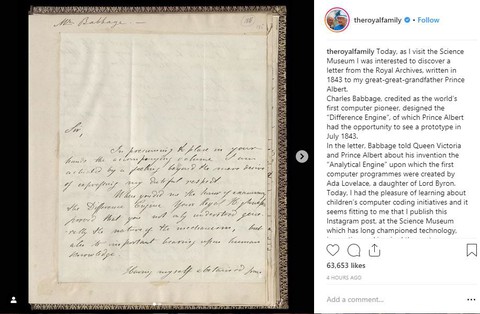 Mr Babbage.
Sir,
In presuming to place in your
hands the accompanying volume I was
actuated by a feeling beyond the mere desire
of expressing my dutiful respect.
When you did me the honor of examining
the Difference Engine Your Royal Highness
proved that you not only understood
the nature of the mechanism, but
also its important bearing upon human
knowledge.
Having myself abstained from
theroyalfamily • Follow
theroyalfamily Today, as I visit the Science
Museum I was interested to discover a
letter from the Royal Archives, written in
1843 to my great-great-grandfather Prince
Albert.
Charles Babbage, credited as the world's
first computer pioneer, designed the
"Difference Engine", of which Prince Albert
had the opportunity to see a prototype in
July 1843.
In the letter, Babbage told Queen Victoria
and Prince Albert about his invention the
"Analytical Engine" upon which the first
computer programmes were created by
Ada Lovelace, a daughter of Lord Byron.
Today, I had the pleasure of learning about
children's computer coding initiatives and it
seems fitting to me that I publish this
Instagram post, at the Science Museum
which has long championed technology,
63,653 likes
4 HOURS AGO
Add a comment...